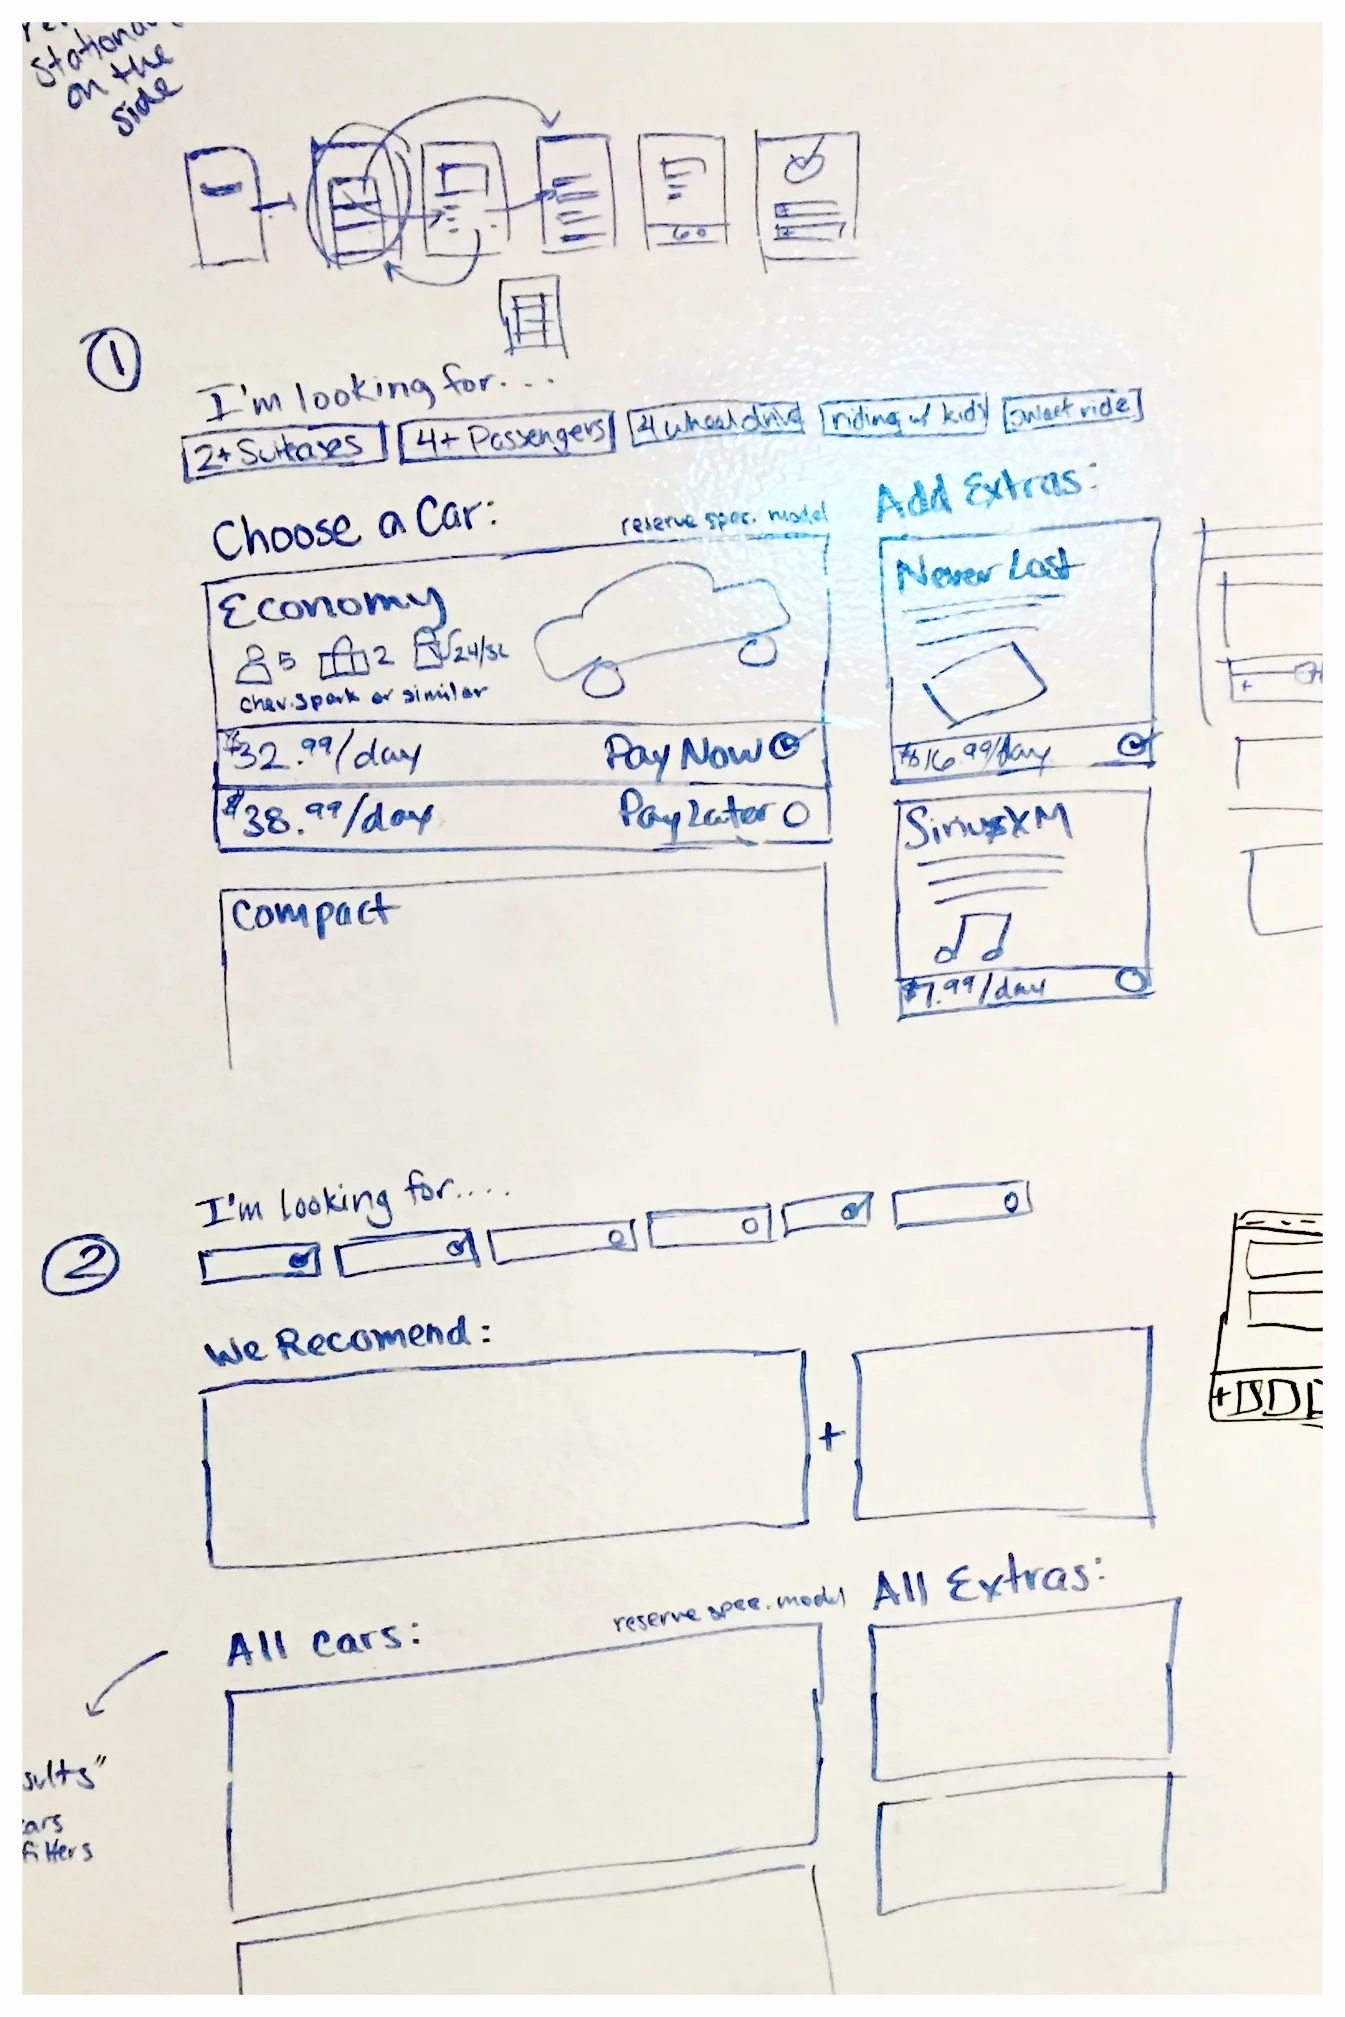 stationary
on the
side
GO
1
I'm looking for...
2+ Suitcases
4+ Passengers
4 wheel drive
riding w/ kids
sweet ride
Choose a Car:
reserve spec. model
Add Extras:
Economy
5 2 24/32
chev. spark or similar
$32.99/day Pay Now
$38.99/day Pay Later
Never Lost
$16.99/day
SiriusXM
$7.99/day
Compact
2
I'm looking for....
We Recomend:
+
All cars:
reserve spec. model
All Extras:
sults"
ars
filters
+